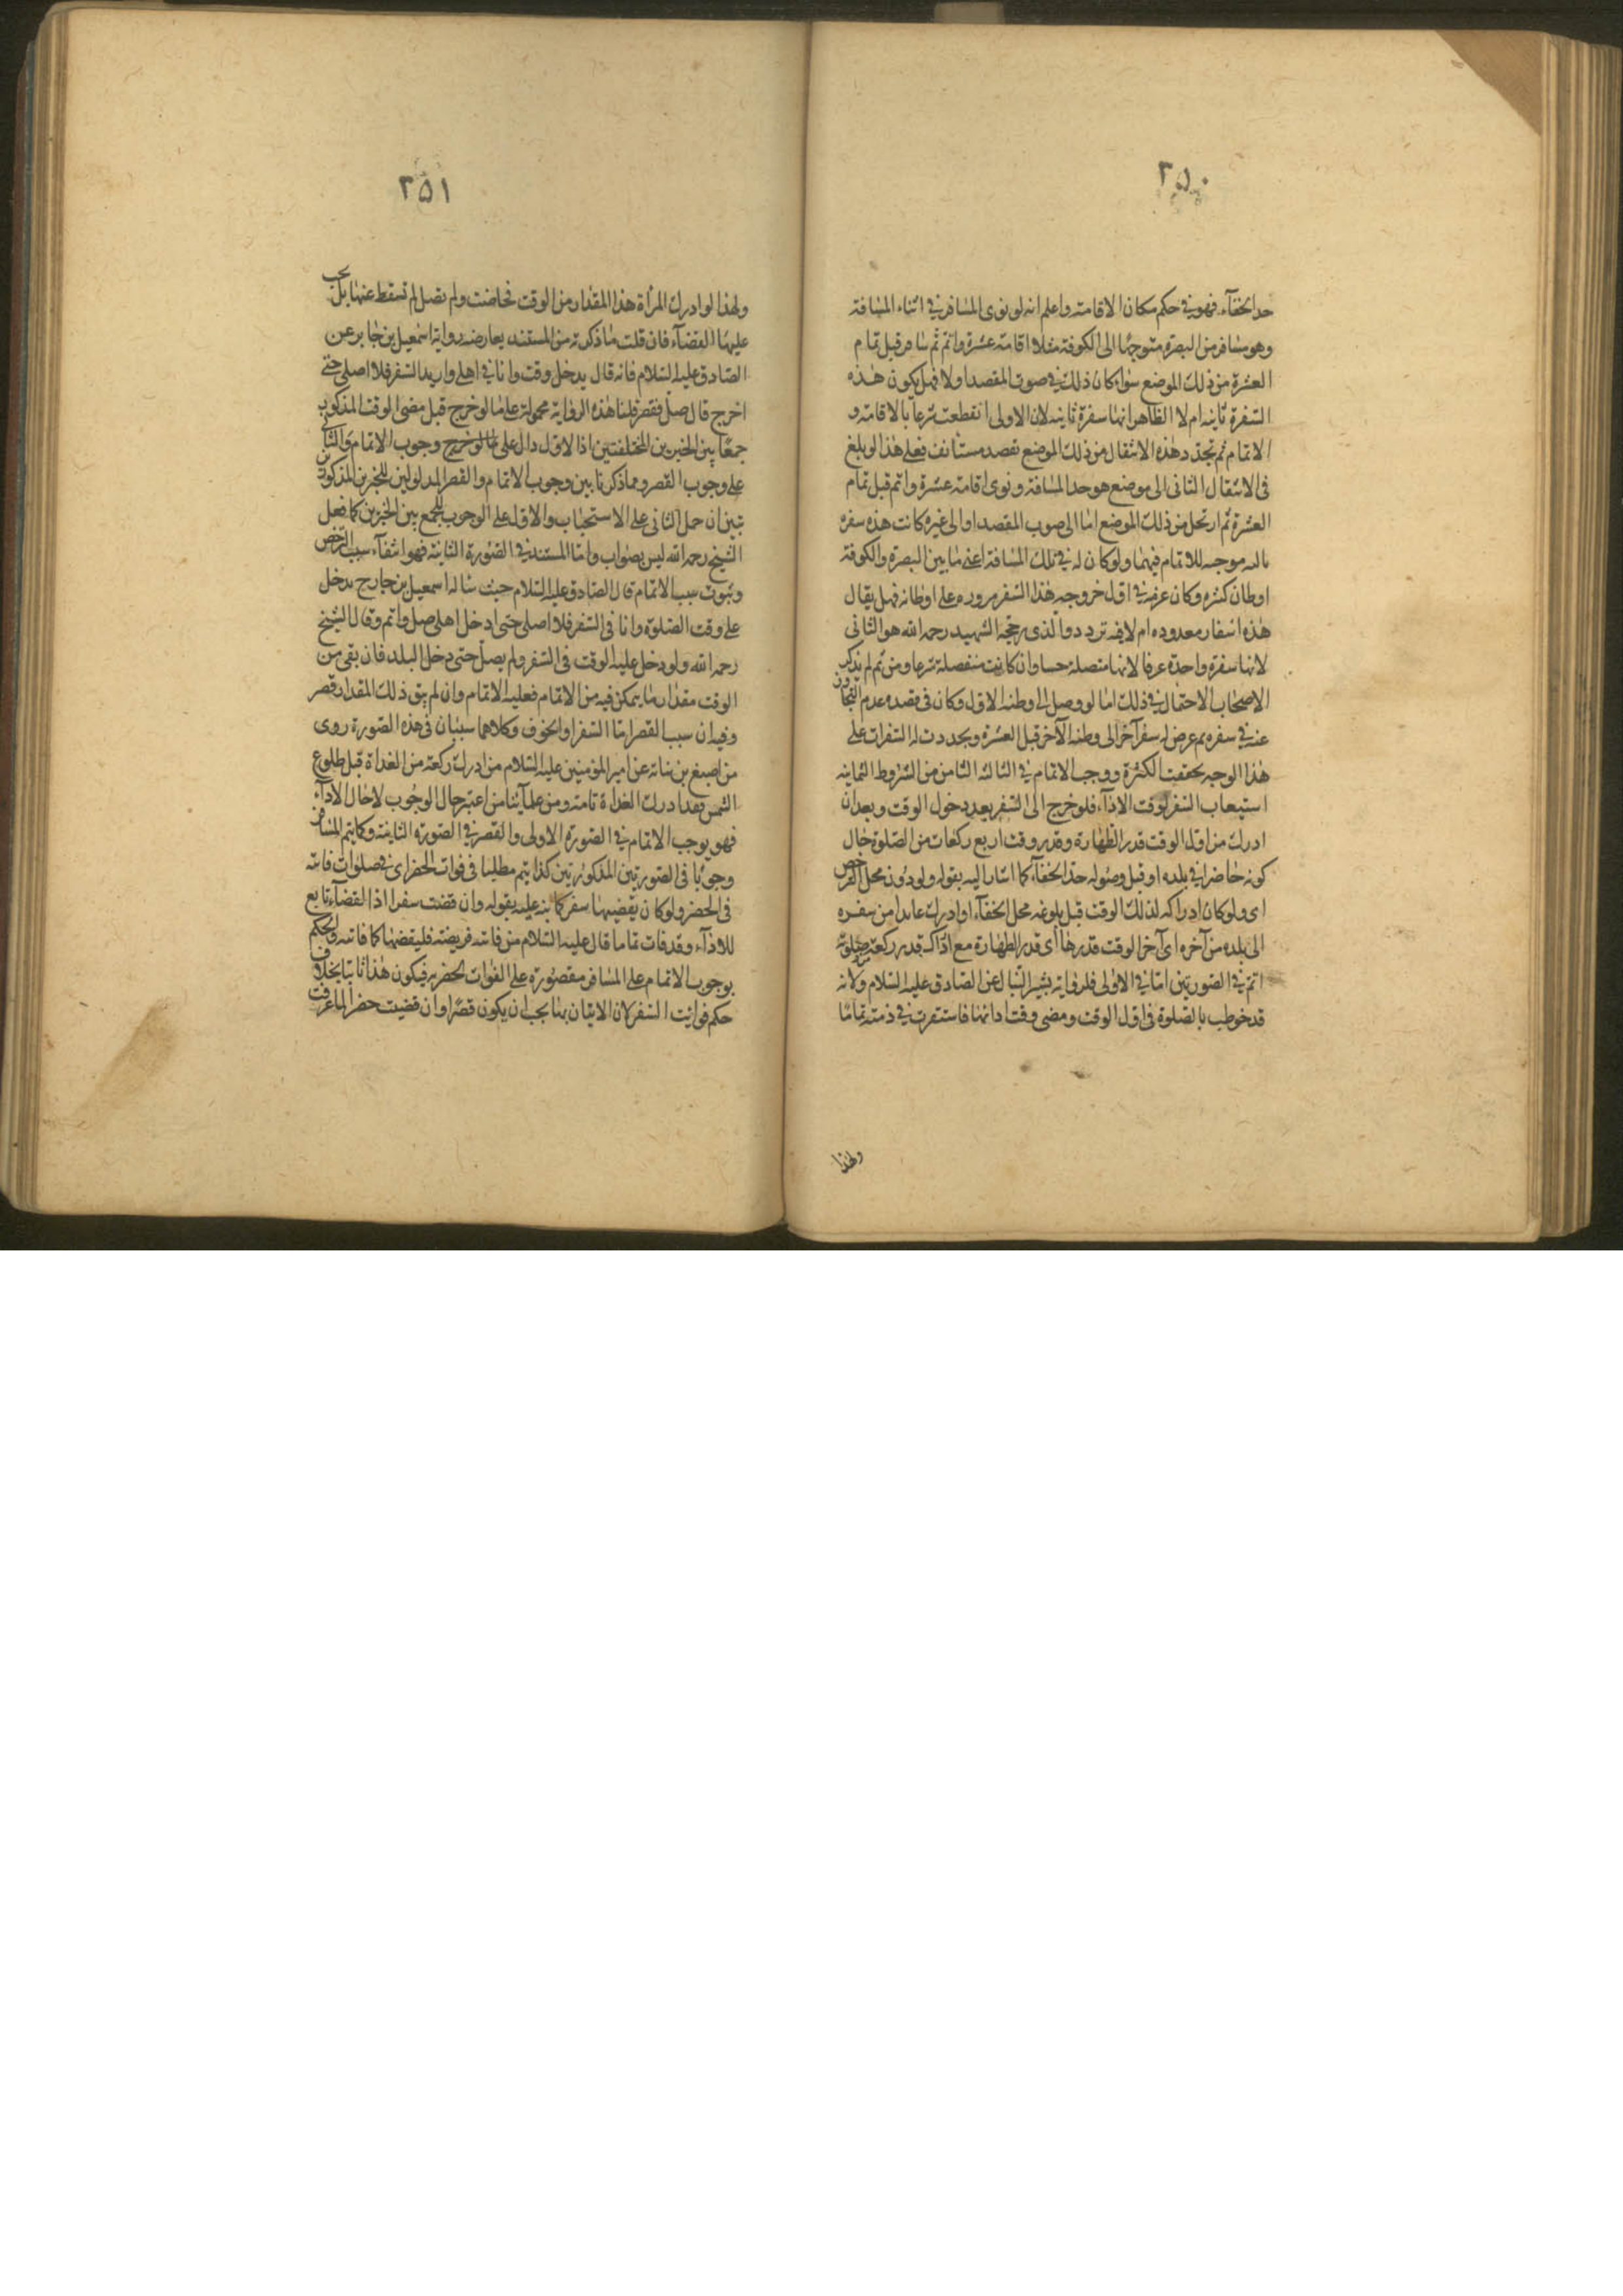 ٢٥٠
حد الخفآء فهو فى حكم مكان الاقامة واعلم انه لو نوى المسافر فى اثناء المسافة
وهو مسافر من البصرة متوجها الى الكوفة مثلا اقامة عشرة واتم ثم سافر قبل تمام
العشرة من ذلك الموضع سواء كان ذلك فى صوب المقصد اولا فهل يكون هذه
السفرة ثانية ام لا الظاهر انها سفرة ثانية لان الاولى انقطعت شرعا بالاقامة و
الاتمام ثم تجدد هذه الانتقال من ذلك الموضع بقصد مستانف فعلى هذا لو بلغ
فى الانتقال الثانى الى موضع هو حد المسافة ونوى اقامة عشرة واتم قبل تمام
العشرة ثم ارتحل من ذلك الموضع اما الى صوب المقصد او الى غيره كانت هذه سفرة
ثالثة موجبة للاتمام فيهما ولو كان له فى تلك المسافة اعنى ما بين البصرة والكوفة
اوطان كثيرة وكان عزمه فى اول خروجه هذا السفر مروره على اوطانه فهل يقال
هذه اسفار معدوده ام لا فيه تردد والذى رجحه الشهيد رحمه الله هو الثانى
لانها سفرة واحدة عرفا لانها متصلة حسا وان كانت منفصلة شرعا ومن ثم لم يذكر
الاصحاب الاحتمال فى ذلك اما لو وصل الى وطنه الاول وكان فى قصده عدم التجاوز
عنه فى سفره ثم عرض له سفر آخر الى وطنه الآخر قبل العشرة وتجددت له السفرات على
هذا الوجه تحققت الكثرة ووجب الاتمام فى الثالثة الثامن من الشروط الثمانية
استيعاب السفر لوقت الاداء فلو خرج الى السفر بعد دخول الوقت وبعد ان
ادرك من اول الوقت قدر الطهارة وقدر وقت اربع ركعات من الصلوة حال
كونه حاضرا فى بلده او قبل وصوله حد الخفآء كما اشار اليه بقوله ولو دون محل الترخص
اى ولو كان ادراكه لذلك الوقت قبل بلوغه محل الخفآء او ادرك عايدا من سفره
الى بلده من آخره اى آخر الوقت قدرها اى قدر الطهارة مع ادراك قدر ركعة من صلوته
اتم فى الصورتين اما فى الاولى فلرواية بشير النبال عن الصادق عليه السلام ولانه
قد خوطب بالصلوة فى اول الوقت ومضى وقت ادائها فاستقرت فى ذمته تماما
ولهذا
٢٥١
ولهذا لو ادركت المرأة هذا المقدار من الوقت فحاضت ولم تصل لم تسقط عنها بل يجب
عليها القضآء فان قلت ما ذكرته من المستند يعارضه رواية اسمعيل بن جابر عن
الصادق عليه السلام فانه قال يدخل وقت وانا فى اهلى واريد السفر فلا اصلى حتى
اخرج قال صل فقصر قلنا هذه الرواية محمولة على ما لو خرج قبل مضى الوقت المذكور
جمعا بين الخبرين المختلفتين اذا الاول دال على ما لو خرج وجوب الاتمام والثانى
على وجوب القصر ومما ذكرنا بين وجوب الاتمام والقصر المدلولين للخبرين المذكورين
تبين ان حمل الثانى على الاستحباب والاول على الوجوب للجمع بين الخبرين كما فعل
الشيخ رحمه الله ليس بصواب واما المستند فى الصورة الثانية فهو انتفآء سبب الترخص
وثبوت سبب الاتمام قال الصادق عليه السلام حيث ساله اسمعيل بن جابر يدخل
على وقت الصلوة وانا فى السفر فلا اصلى حتى ادخل اهلى صل واتم وقال الشيخ
رحمه الله ولو دخل عليه الوقت فى السفر ولم يصل حتى دخل البلد فان بقى من
الوقت مقدار ما يمكن فيه من الاتمام فعليه الاتمام وان لم يبق ذلك المقدار قصر
وفيه ان سبب القصر اما السفر او الخوف وكلاهما سببان فى هذه الصورة روى
من اصبغ بن نباته عن امير المؤمنين عليه السلام من ادرك ركعة من الغداة قبل طلوع
الشمس فقد ادرك الغداة تامة ومن علمآئنا من اعتبر حال الوجوب لا حال الادآء
فهو يوجب الاتمام فى الصورة الاولى والقصر فى الصورة الثانية وكما يتم المسافر
وجوبا فى الصورتين المذكورتين كذا يتم مطلبا فى فوات الحضر اى فى صلوات فاتته
فى الحضر ولو كان يقضيها سفر كما نبه عليه بقوله وان قضت سفرا اذ القضآء تابع
للادآء وقد فات تماما قال عليه السلام من فاتته فريضة فليقضها كما فاتته والحكم
بوجوب الاتمام على المسافر مقصورة على الفوات لحضر به فيكون هذا ثابتا بخلاف
حكم فوايت السفر لان الاتيان بها يجب ان يكون قصرا وان قضيت حضرا لما عرفت